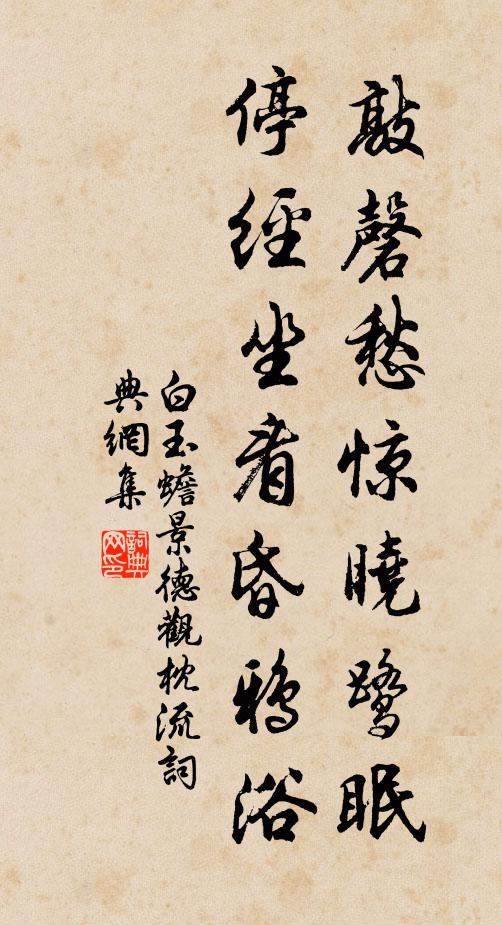 敲磬愁惊曉鷺眠
停經坐看昏鴉浴
白玉蟾景德觀枕流詞
典網集
詞典網印